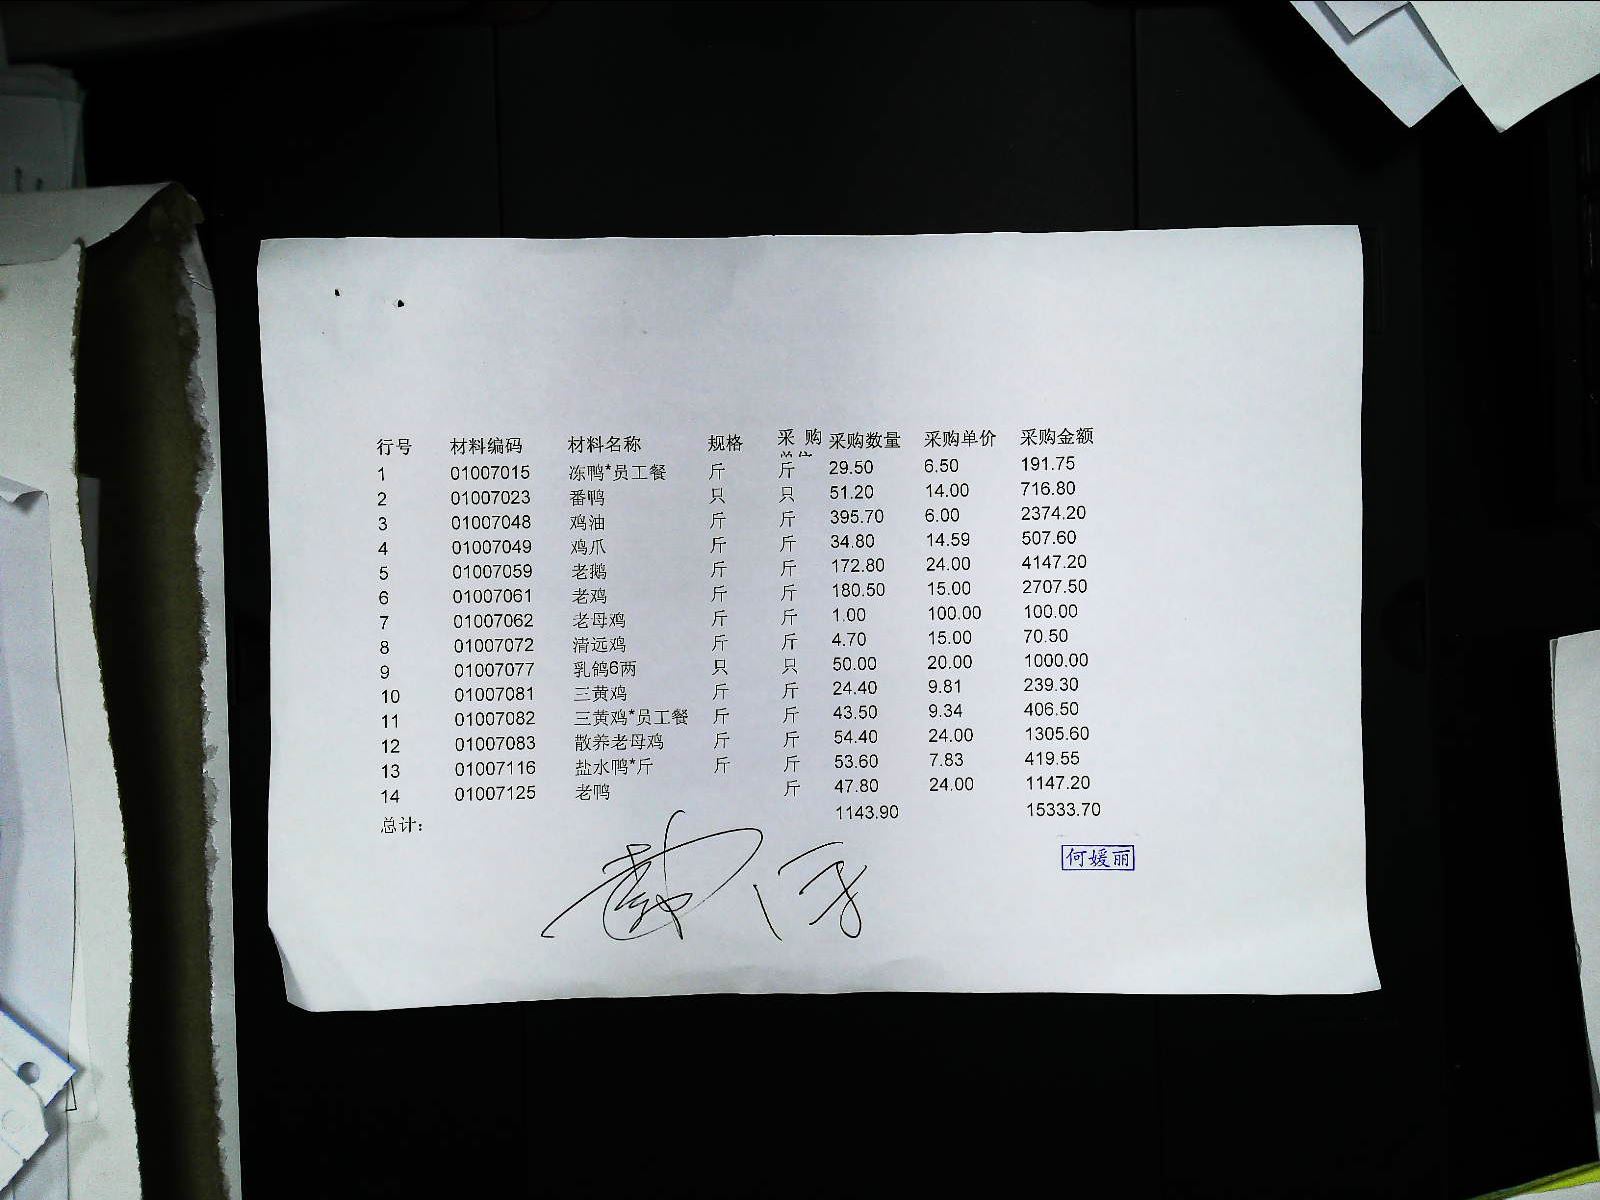 行号 材料编码 材料名称 规格 采购单位 采购数量 采购单价 采购金额
1 01007015 冻鸭*员工餐 斤 斤 29.50 6.50 191.75
2 01007023 番鸭 只 只 51.20 14.00 716.80
3 01007048 鸡油 斤 斤 395.70 6.00 2374.20
4 01007049 鸡爪 斤 斤 34.80 14.59 507.60
5 01007059 老鹅 斤 斤 172.80 24.00 4147.20
6 01007061 老鸡 斤 斤 180.50 15.00 2707.50
7 01007062 老母鸡 斤 斤 1.00 100.00 100.00
8 01007072 清远鸡 斤 斤 4.70 15.00 70.50
9 01007077 乳鸽6两 只 只 50.00 20.00 1000.00
10 01007081 三黄鸡 斤 斤 24.40 9.81 239.30
11 01007082 三黄鸡*员工餐 斤 斤 43.50 9.34 406.50
12 01007083 散养老母鸡 斤 斤 54.40 24.00 1305.60
13 01007116 盐水鸭*斤 斤 斤 53.60 7.83 419.55
14 01007125 老鸭 斤 47.80 24.00 1147.20
总计： 1143.90 15333.70
何媛丽